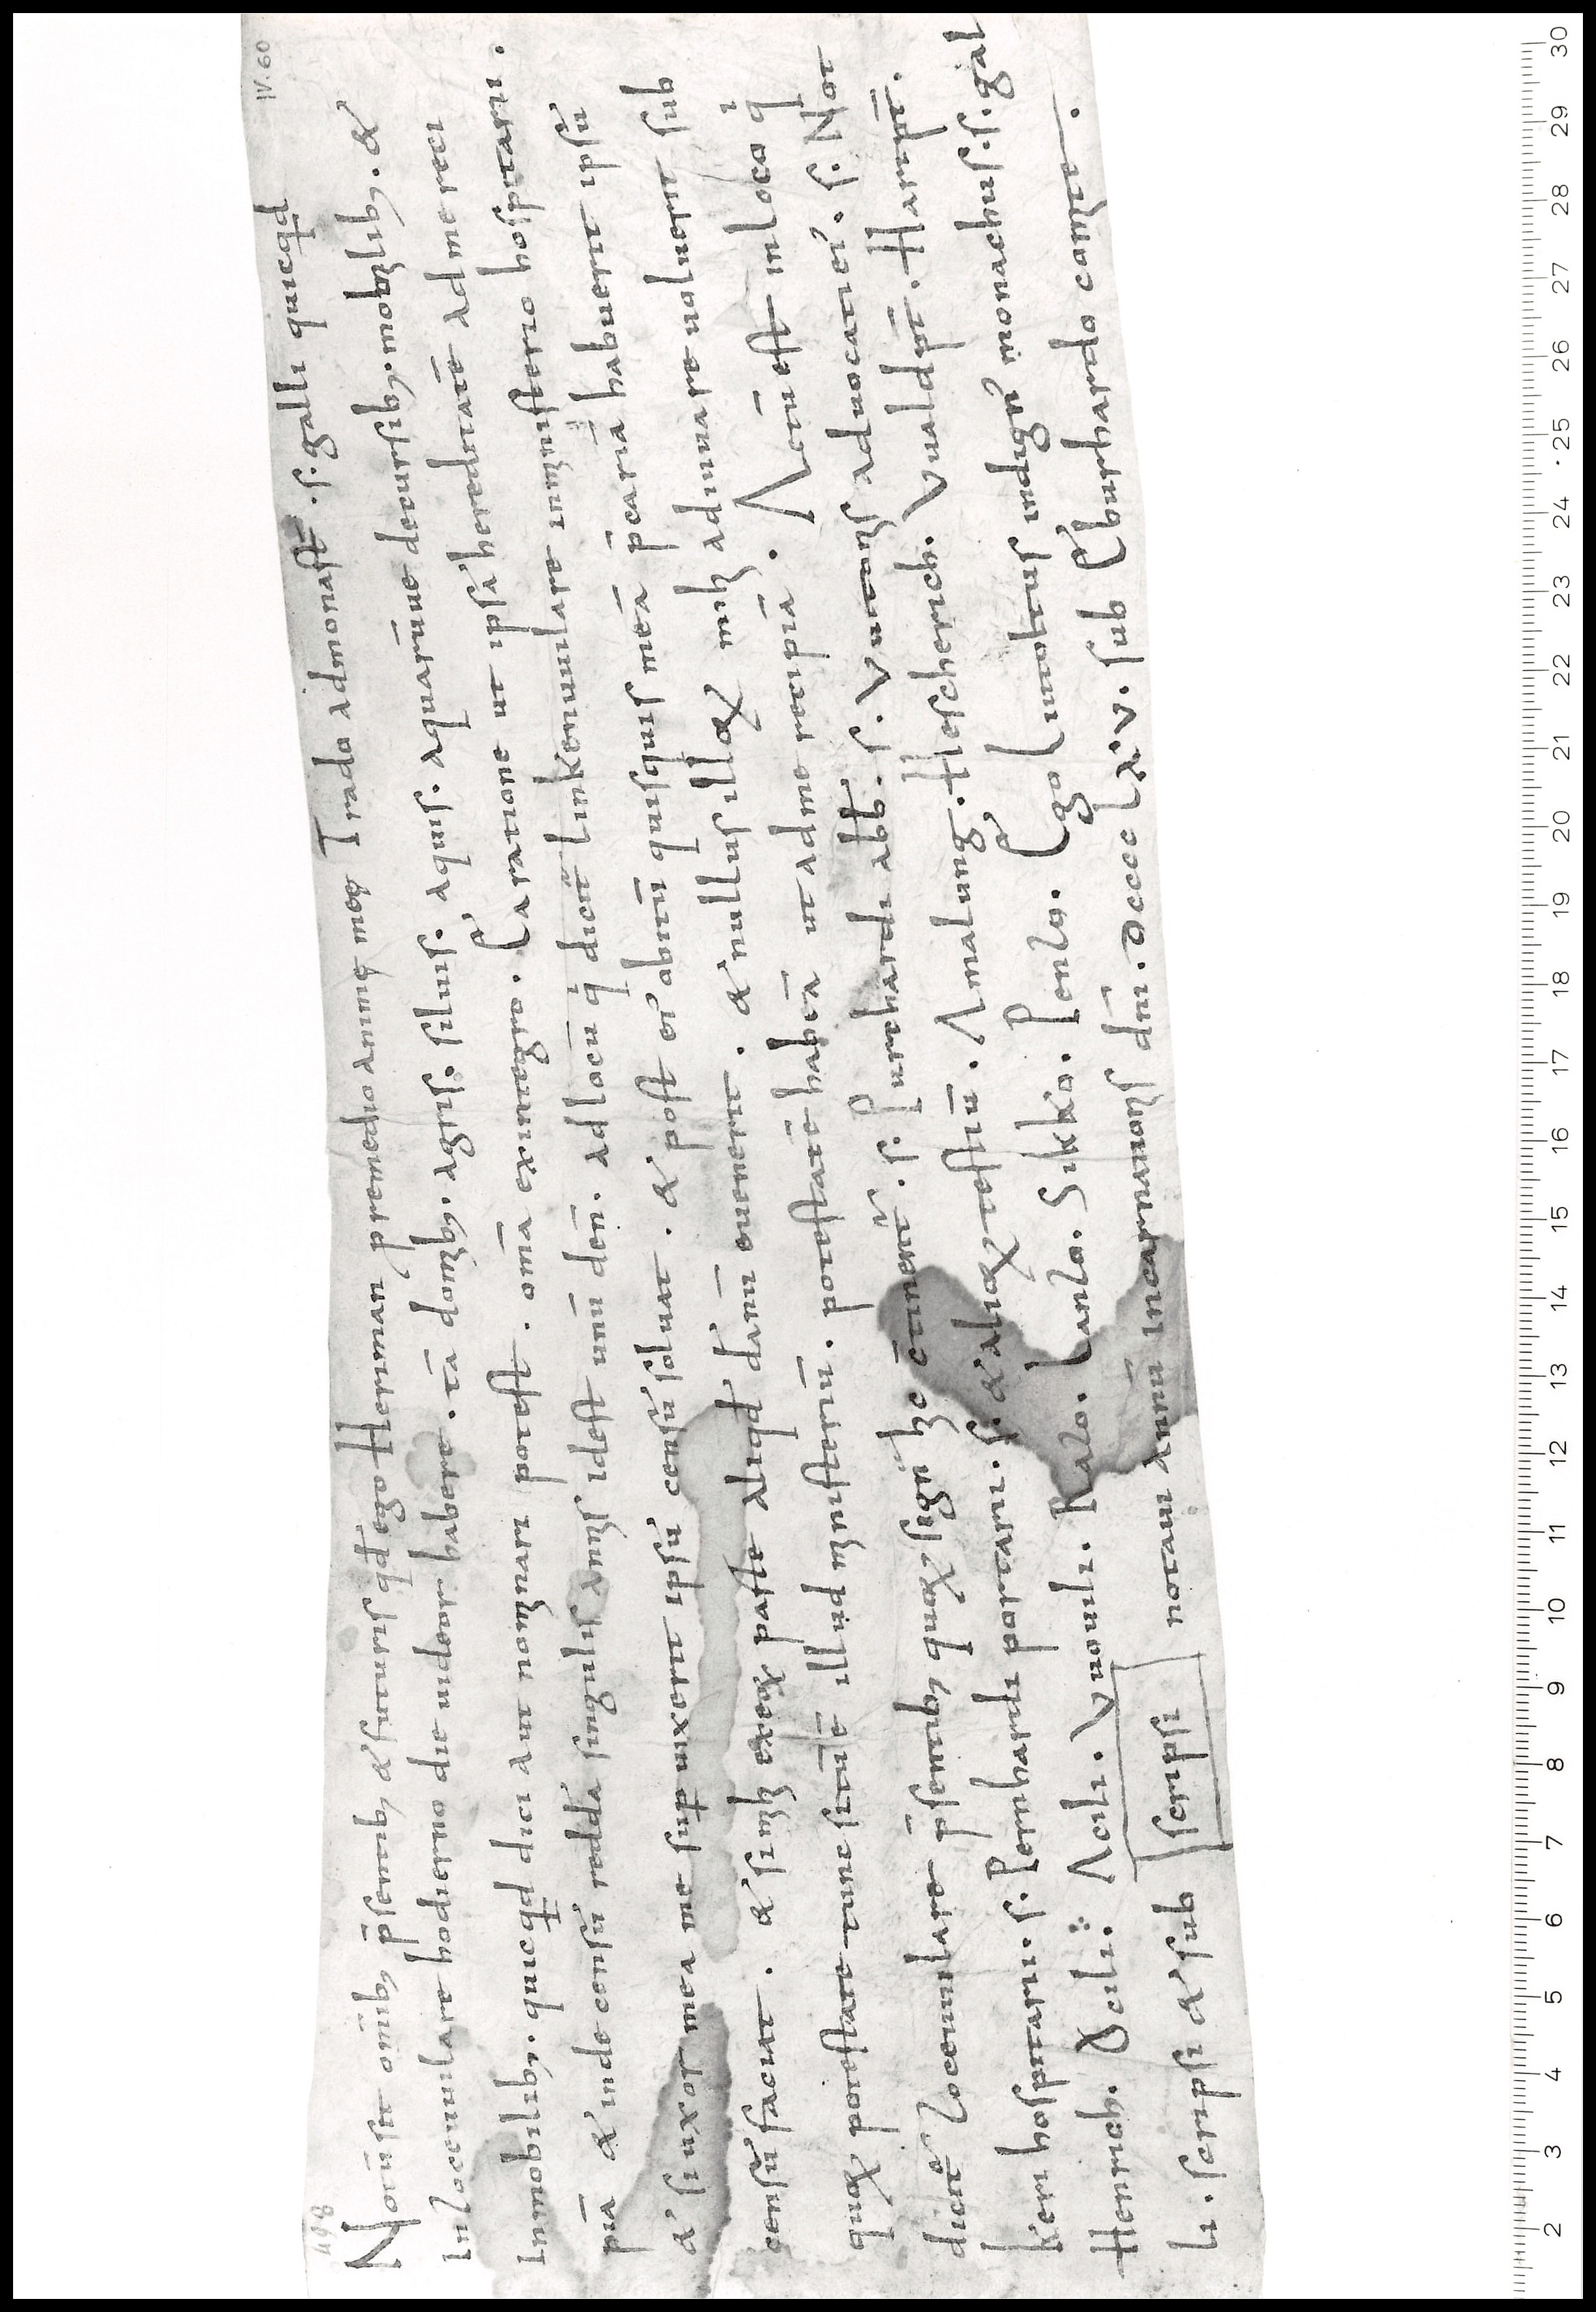 Notũ sit omĩbꝫ p̃sentibꝫ & futuris qđ ego Heriman p remedio animę meę Trado ad monast̃. s̃. galli quicqđ
In zocenuilare hodierno die uideor habere. tã domibꝫ. agris. siluis. aquis. aquarũue decursibꝫ. mobilibꝫ. &
Inmobilibꝫ. quicqđ dici aut nominari potest. omĩa ex integro. Ea ratione ut ipsã hereditatẽ ad me reci
piã & inde censũ reddã singulis annis id est unũ deñ. ad locũ q̇ dicit̃ linkenuuilare in ministerio hospitarii.
& si uxor mea me suꝑuixerit ipsũ censũ soluat. & post ei' obitũ quisquis meã p̃cariã habuerit ipsũ
censũ faciat. & si mihi ex ea parte aliqđ dãnũ euenerit. & nullus illoꝝ mihi adiuuare uoluerit sub
quoꝝ potestate tunc sit tale illud ministeriũ. potestatẽ habeã ut ad me recipiã. Actũ est in loco q̇
dicit̃ Zocenuilare p̃sentibꝫ quoꝝ signa hic cõtinent̃. s. Purchardi abb̃. s. Vuitonis aduocati ei'. s. Not
keri hospitarii. s. Pernhardi portarii. s. & alioꝝ testiũ. Amalung. Hescherich. Vualdp̃t. Harip̃t.
Heinrich. Ozili. Azili. Vuouili. Razo. Lanzo. Sikko. Penzo. Ego Liutoltus indign' monachus. s. gal
li. scripsi & sub scripsi notaui annũ incarnationis dñi. dcccc lx.v. sub Eburhardo comite.
498
IV. 60
2 3 4 5 6 7 8 9 10 11 12 13 14 15 16 17 18 19 20 21 22 23 24 25 26 27 28 29 30